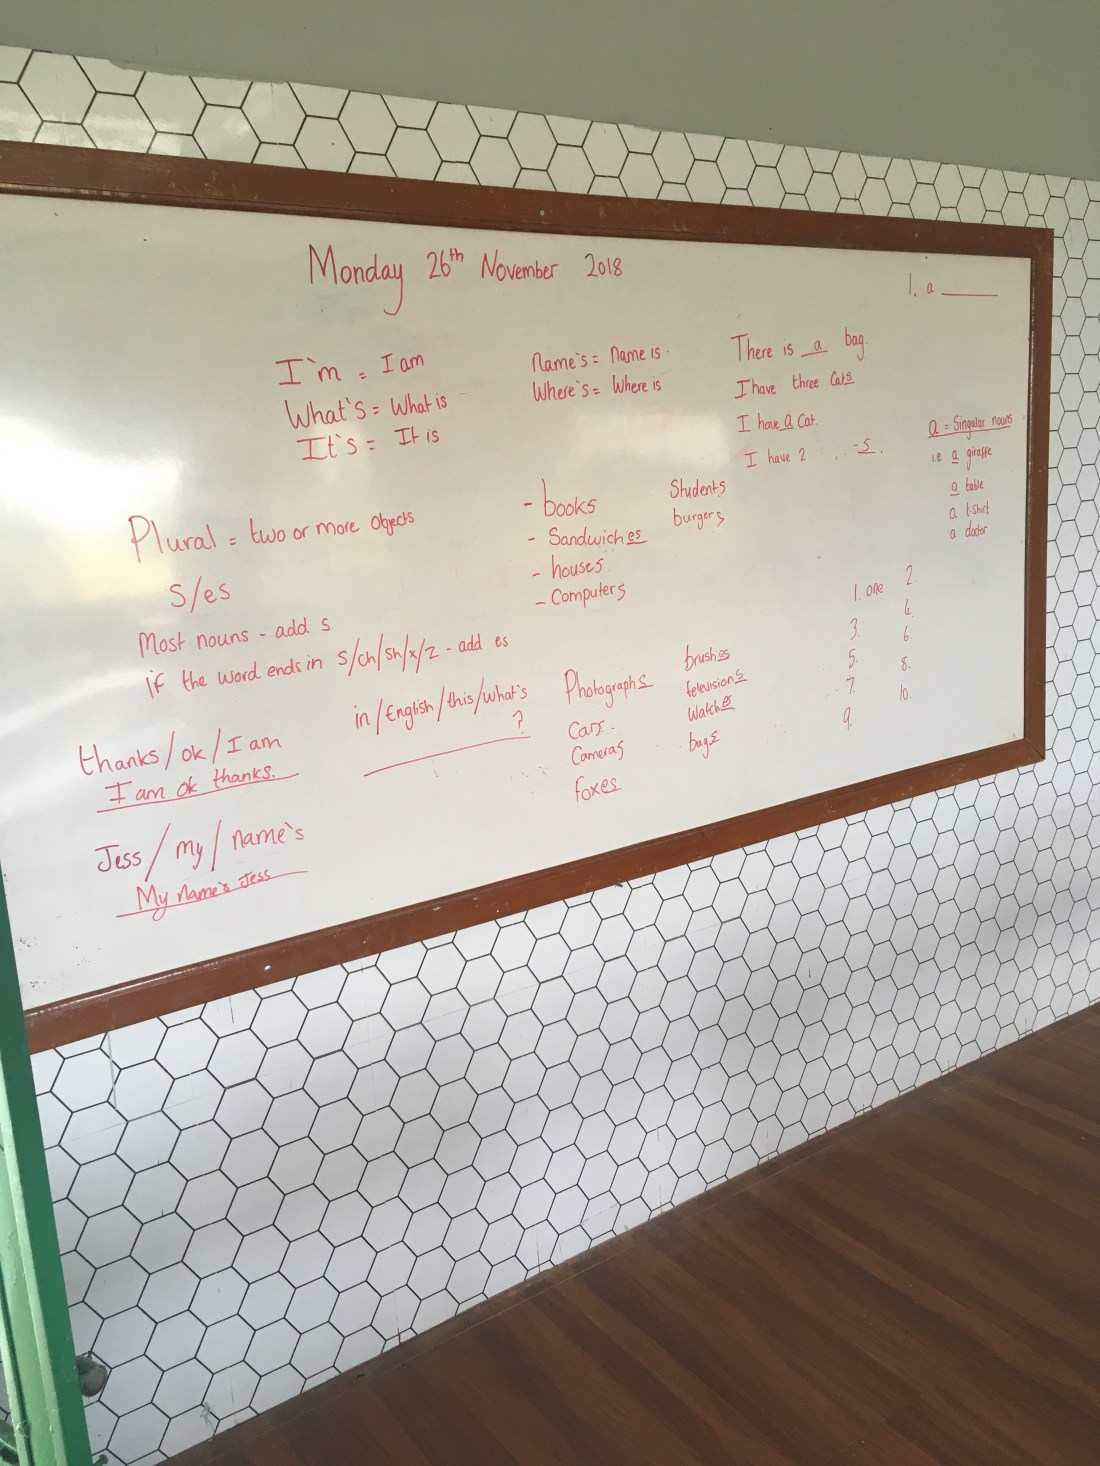 Monday 26th November 2018
1. a ______
I'm = I am
What's = What is
It's = It is
Name's = Name is
Where's = Where is
There is a bag.
I have three Cats
I have a Cat.
I have 2 ... -s.
a = Singular nouns
i.e a giraffe
a table
a t-shirt
a doctor
Plural = two or more objects
s/es
Most nouns - add s
if the word ends in s/ch/sh/x/z - add es
- books
- Sandwiches
- houses
- Computers
Students
burgers
1. one
2.
3.
4.
5.
6.
7.
8.
9.
10.
thanks/ok/I am
I am ok thanks.
Jess/my/name's
My name's Jess
in/English/this/what's
______?
Photographs
Cars
Cameras
foxes
brushes
televisions
Watches
bags